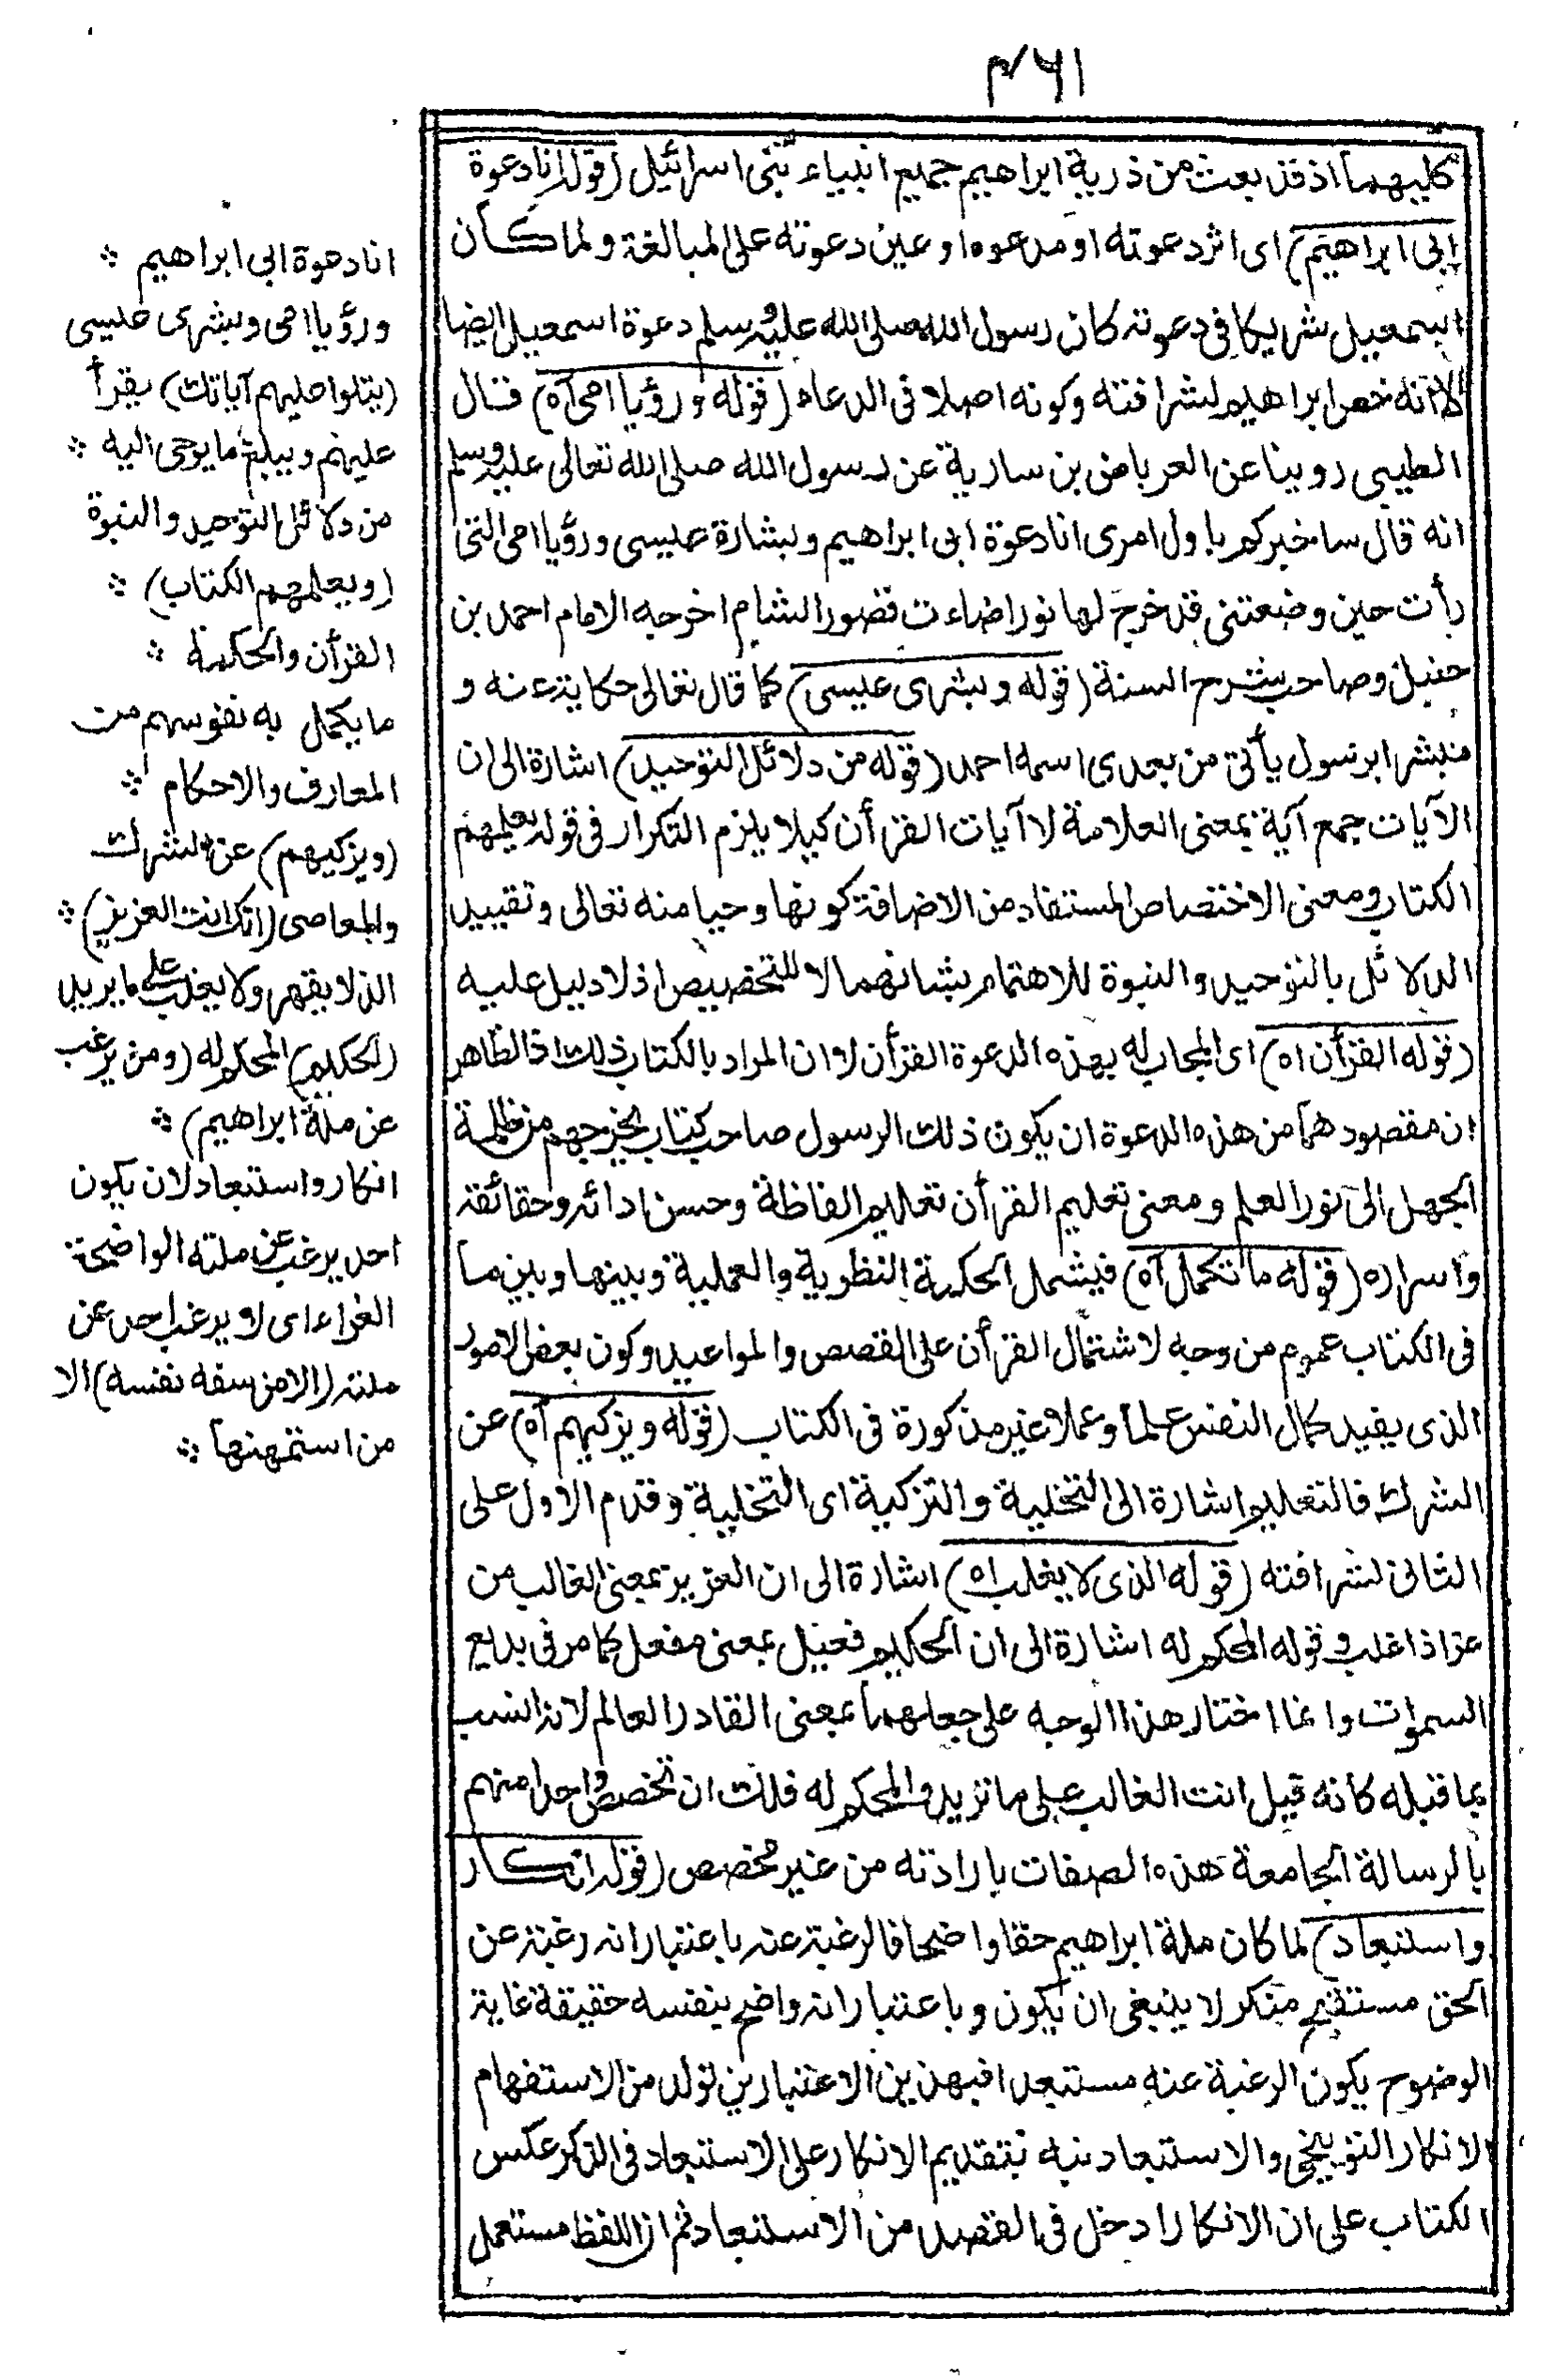 ٤٦١
كليهما اذ قد بعث من ذرية ابراهيم جميع انبياء بنى اسرائيل (قوله انا دعوة
ابى ابراهيم) اى اثر دعوته او مدعوه او عين دعوته على المبالغة ولما كان
اسمعيل شريكا فى دعوته كان رسول الله صلى الله عليه وسلم دعوة اسمعيل ايضا
الا انه خص ابراهيم لشرافته وكونه اصلا فى الدعاء (قوله ورؤيا امى آه) قال
الطيبى روينا عن العرباض بن سارية عن رسول الله صلى الله تعالى عليه وسلم
انه قال ساخبركم باول امرى انا دعوة ابى ابراهيم وبشارة عيسى ورؤيا امى التى
رأت حين وضعتنى قد خرج لها نور اضاءت قصور الشام اخرجه الامام احمد بن
حنبل وصاحب شرح السنة (قوله وبشرى عيسى) كما قال تعالى حكاية عنه و
مبشرا برسول يأتى من بعدى اسمه احمد (قوله من دلائل التوحيد) اشارة الى ان
الآيات جمع آية بمعنى العلامة لا آيات القرأن كيلا يلزم التكرار فى قوله يعلمهم
الكتاب ومعنى الاختصاص المستفاد من الاضافة كونها وحيا منه تعالى وتقييد
الدلائل بالتوحيد والنبوة للاهتمام بشانهما لا للتخصيص اذ لا دليل عليه
(قوله القرأن اه) اى المجاب له بهذه الدعوة القرأن لا ان المراد بالكتاب ذلك اذ الظاهر
ان مقصودهما من هذه الدعوة ان يكون ذلك الرسول صاحب كتاب يخرجهم من ظلمة
الجهل الى نور العلم ومعنى تعليم القرأن تعليم الفاظة وحسن ادائه وحقائقه
واسراره (قوله ما تكمل آه) فيشمل الحكمة النظرية والعملية وبينها وبين ما
فى الكتاب عموم من وجه لاشتمال القرأن على القصص والمواعيد وكون بعض الامور
الذى يفيد كمال النفس علما وعملا غير مذكورة فى الكتاب (قوله ويزكيهم آه) عن
الشرك فالتعليم اشارة الى التحلية والتزكية اى التخلية وقدم الاول على
الثانى لشرافته (قوله الذى لا يغلب اه) اشارة الى ان العزيز بمعنى الغالب من
عز اذا غلب وقوله المحكم له اشارة الى ان الحكيم فعيل بمعنى مفعل كما مر فى بديع
السموات وانما اختار هذا الوجه على جعلهما بمعنى القادر العالم لانه انسب
بما قبله كانه قيل انت الغالب على ما تريد والمحكم له فلك ان تخصص واحدا منهم
بالرسالة الجامعة هذه الصفات بارادته من غير مخصص (قوله انكار
واستبعاد) لما كان ملة ابراهيم حقا واضحا فالرغبة عنه باعتبار انه رغبة عن
الحق مستقبح منكر لا ينبغى ان يكون وباعتبار انه واضح بنفسه حقيقة غاية
الوضوح يكون الرغبة عنه مستبعدا فبهذين الاعتبارين تولد من الاستفهام
الانكار التوبيخى والاستبعاد نبه بتقديم الانكار على الاستبعاد فى الذكر عكس
الكتاب على ان الانكار ادخل فى القصد من الاستبعاد ثم ان اللفظ مستعمل
انا دعوة ابى ابراهيم ؞
ورؤيا امى وبشرى عيسى
(يتلوا عليهم آياتك) يقرأ
عليهم ويبلغ ما يوحى اليه ؞
من دلائل التوحيد والنبوة
(ويعلمهم الكتاب) ؞
القرأن والحكمة ؞
ما يكمل به نفوسهم من
المعارف والاحكام ؞
(ويزكيهم) عن الشرك
والمعاصى (انك انت العزيز) ؞
الذ لا يقهر ولا يغلب على ما يريد
(الحكيم) المحكم له (ومن يرغب
عن ملة ابراهيم) ؞
انكار واستبعاد لان يكون
احد يرغب عن ملته الواضحة
الغراء اى لا يرغب احد عن
ملته (الا من سفه نفسه) الا
من استمهنها ؞